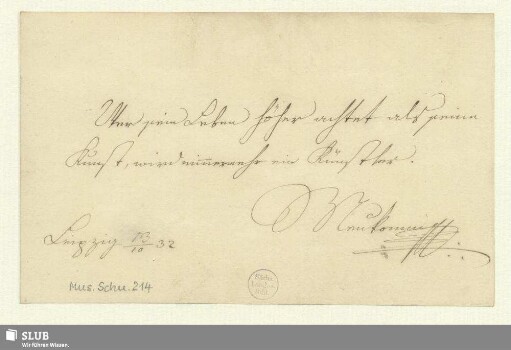 Wer sein Leben höher achtet als seine
Kunst, wird nimmermehr ein Künstler.
Neukomm
Leipzig /10 32
Mus. Schu. 214
SLUB
Wir führen Wissen.